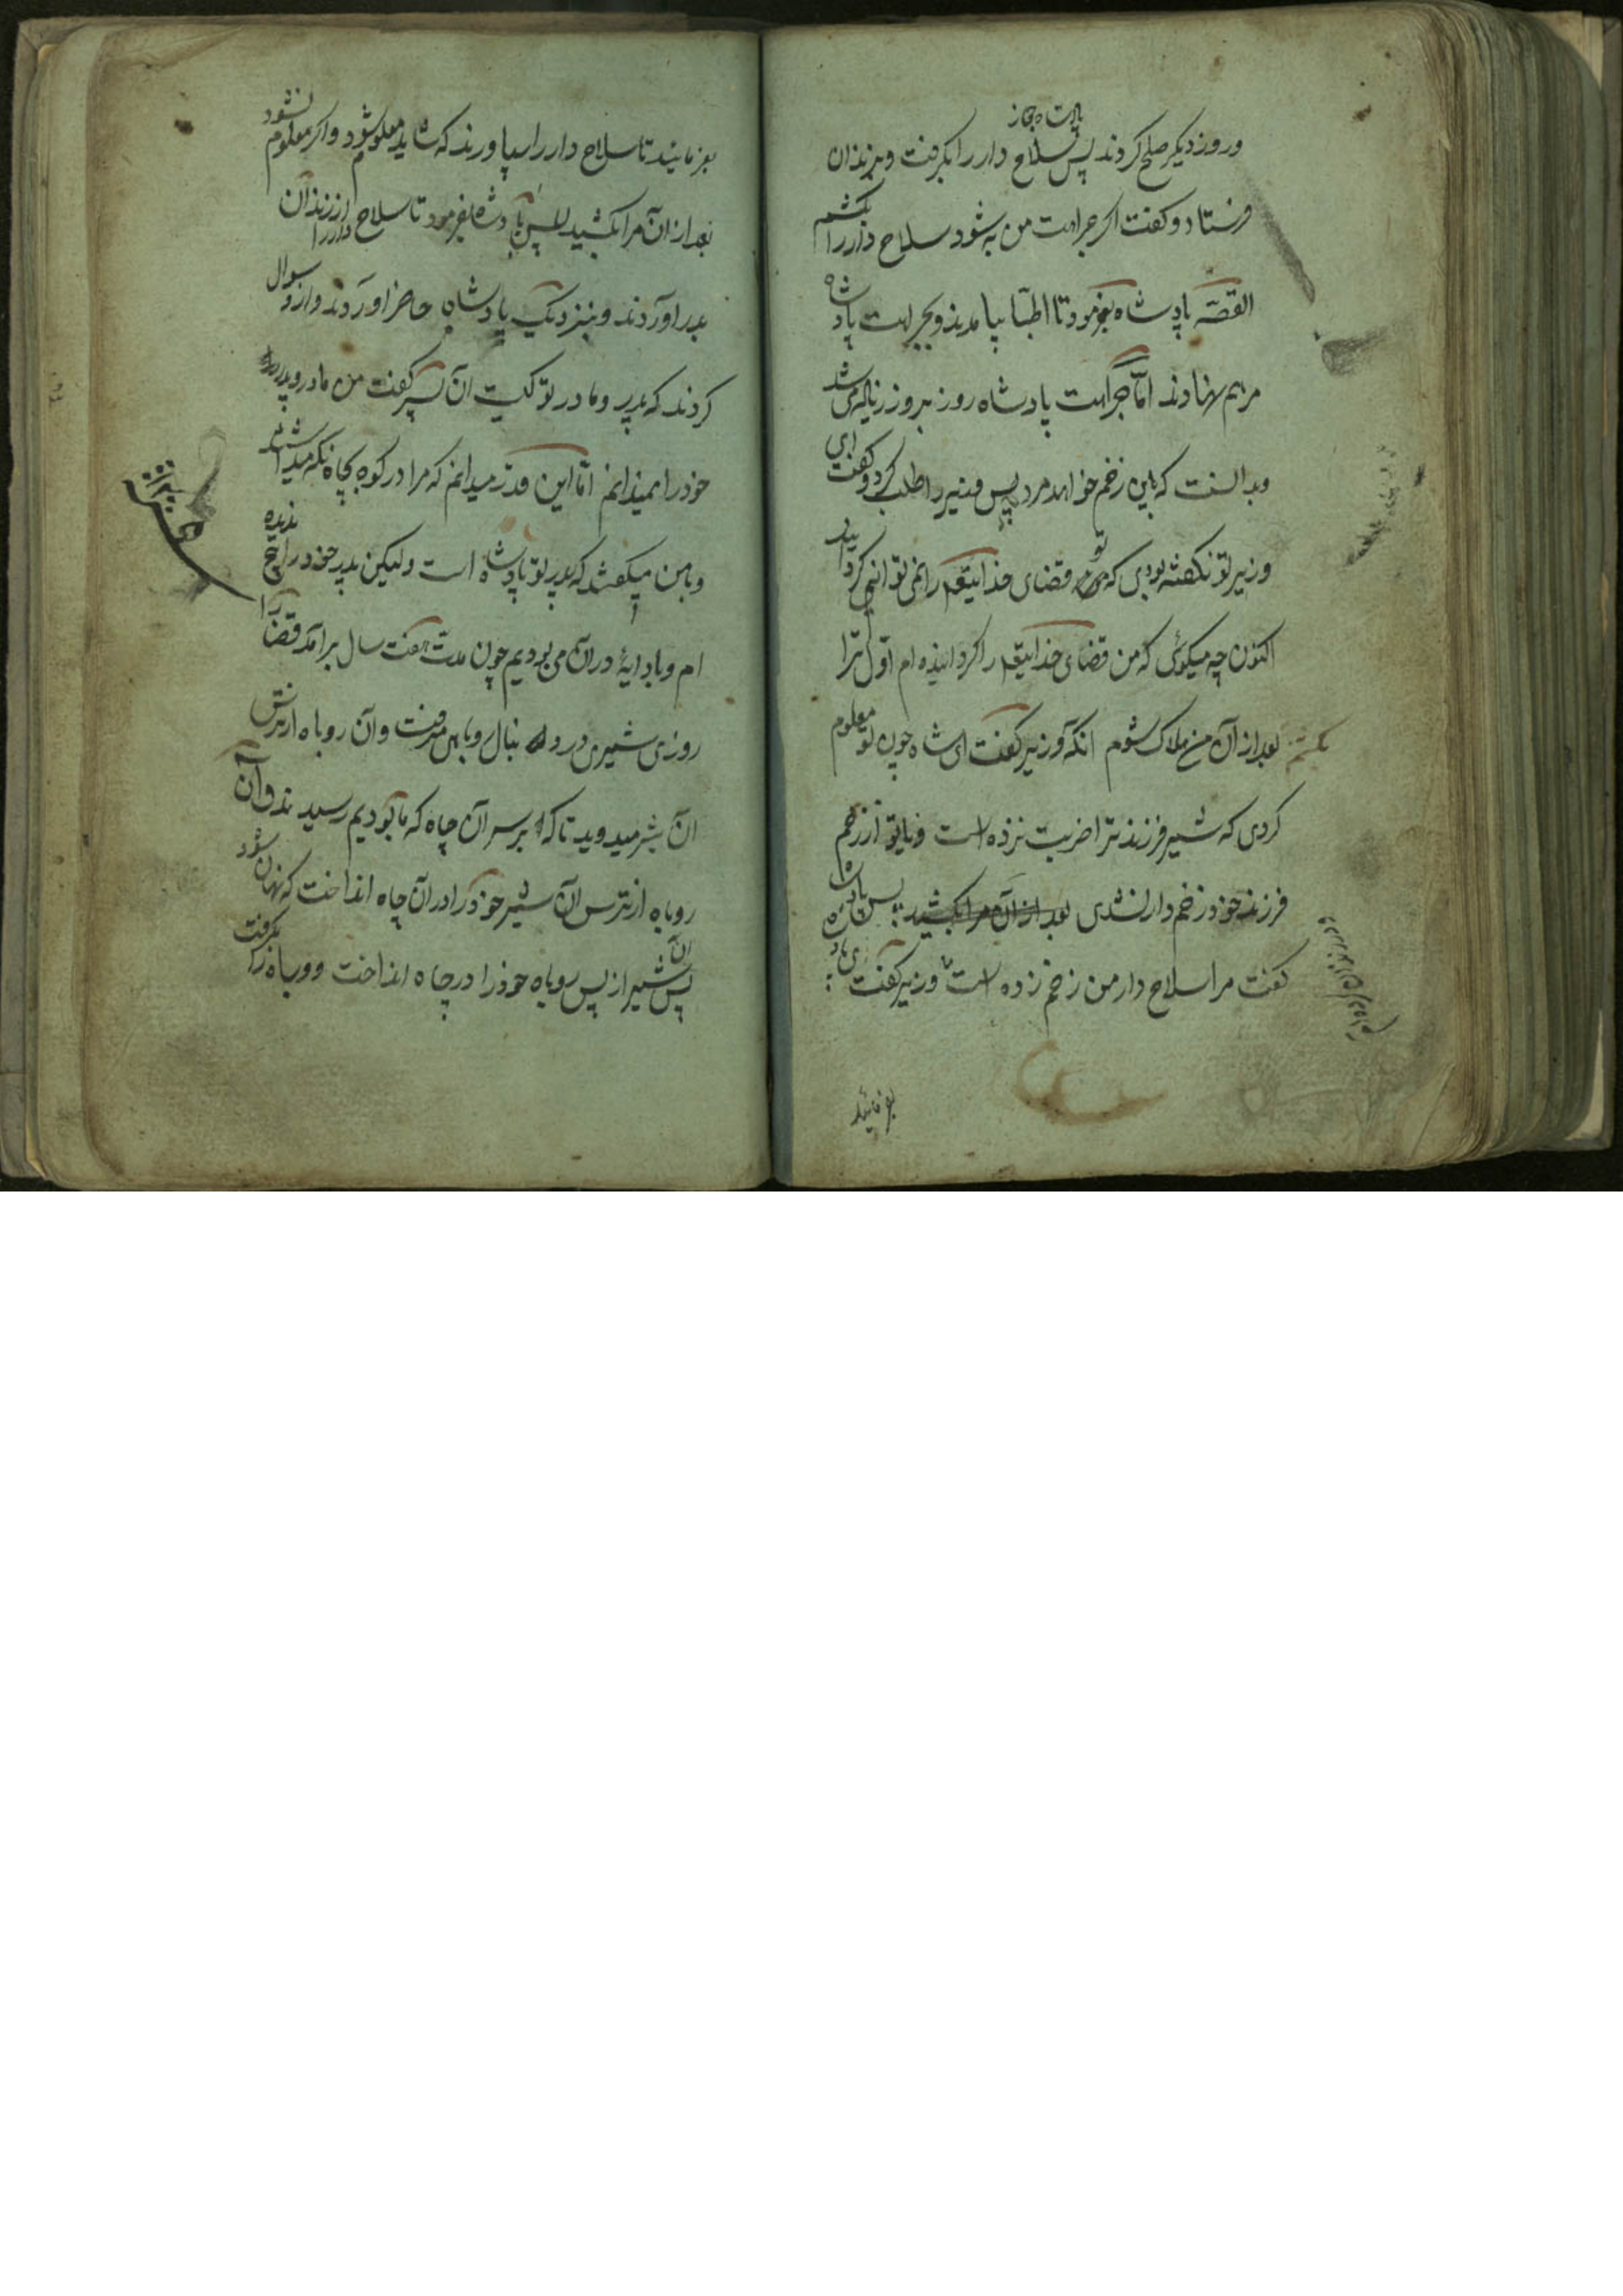 و روز دیکر صلح کردند پس سلاح دار را بکرفت و بزندان
فرستاد و کفت اکر جراحت من به شود سلاح دار را بکشم
القصّه پادشاه بفرمود تا اطبّا بیامدند و بجراحت پادشاه
مرهم نهادند امّا جراحت پادشاه روز بروز زیاله می شد
و بدانست که باین زخم خواهد مرد پس وزیر را طلب کرد و کفت ای
وزیر تو نکفته بودی که تو قضای خدایتعم را نمی توانی کردانید
اکنون چه میکوئی که من قضای خدایتعم را کردانیده ام اوّل ترا
بکشم بعد از آن من هلاک شوم آنکه وزیر کفت ای شاه چون تو معلوم
کردی که شیر فرزند ترا ضربت نزده است و یا تو از زخم
فرزند خود زخم دار نشدی بعد از آن مرا بکشید پس پادشاه
کفت مرا سلاح دار من زخم زده است وزیر کفت
بفرمائید
بفرمائید تا سلاح دار را بیاورند که شاید معلوم شود و اکر معلوم نشود
بعد از ان مرا بکشید پس پادشاه بفرمود تا سلاح دار را از زندان
بدر آوردند و بنزدیک پادشاه حاضر آوردند و از و سوال
کردند که پدر و مادر تو کیست آن پسر کفت من مادر و پدر
خود را نمیدانم امّا این قدر میدانم که مرا در کوه بچاه نکه میداشتند
و با من میکفتند که پدر تو پادشاه است ولیکن پدر خود را هیچ ندیده
ام و با دایهٔ در آن می بودیم چون مدت هفت سال برآمد قضا را
روزی شیری در دنبال روباهی میرفت و آن روباه از ترس
آن شیر میدوید تا که بر سر آن چاه که ما بودیم رسیدند و آن
روباه از ترس آن شیر خود را در آن چاه انداخت که نهان شود
پس آن شیر از پس روباه خود را در چاه انداخت و روباه را بکرفت